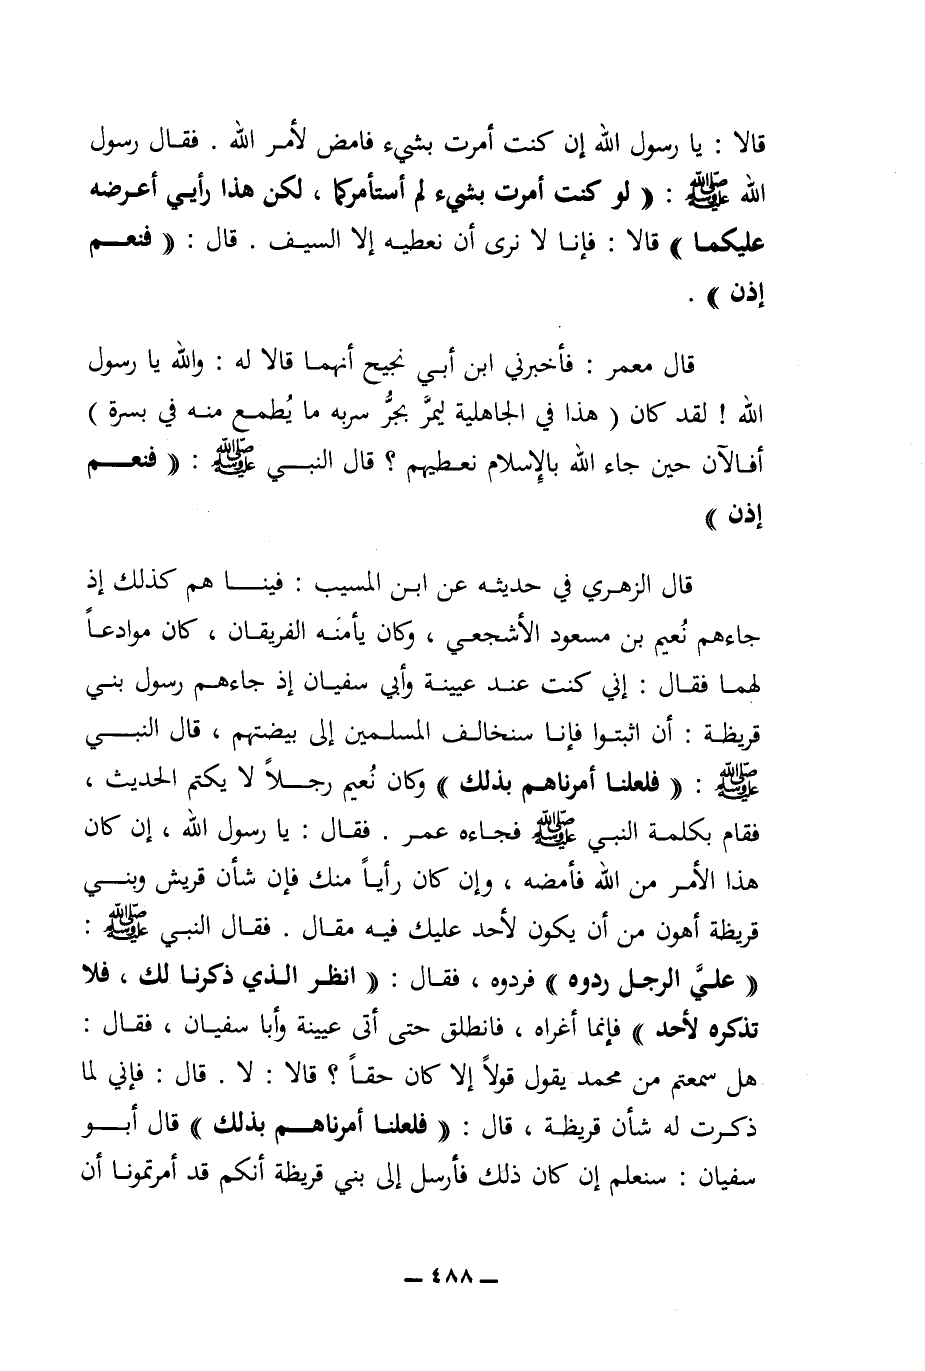 قالا : يا رسول الله إن كنت أمرت بشيء فامض لأمر الله . فقال رسول
الله ﷺ : « لو كنت أمرت بشيء لم أستأمركما ، لكن هذا رأيي أعرضه
عليكما » قالا : فإنا لا نرى أن نعطيه إلا السيف . قال : « فنعم
إذن » .
قال معمر : فأخبرني ابن أبي نجيح أنهما قالا له : والله يا رسول
الله ! لقد كان ( هذا في الجاهلية ليمرَّ بجرُّ سربه ما يُطمع منه في بسرة )
أفالآن حين جاء الله بالإسلام نعطيهم ؟ قال النبي ﷺ : « فنعم
إذن »
قال الزهري في حديثه عن ابن المسيب : فينا هم كذلك إذ
جاءهم نُعيم بن مسعود الأشجعي ، وكان يأمنَه الفريقان ، كان موادعاً
لهما فقال : إني كنت عند عيينة وأبي سفيان إذ جاءهم رسول بني
قريظة : أن اثبتوا فإنا سنخالف المسلمين إلى بيضتهم ، قال النبي
ﷺ : « فلعلنا أمرناهم بذلك » وكان نُعيم رجلاً لا يكتم الحديث ،
فقام بكلمة النبي ﷺ فجاءه عمر . فقال : يا رسول الله ، إن كان
هذا الأمر من الله فأمضه ، وإن كان رأياً منك فإن شأن قريش وبني
قريظة أهون من أن يكون لأحد عليك فيه مقال . فقال النبي ﷺ :
« عليَّ الرجل ردوه » فردوه ، فقال : « انظر الذي ذكرنا لك ، فلا
تذكره لأحد » فإنما أغراه ، فانطلق حتى أتى عيينة وأبا سفيان ، فقال :
هل سمعتم من محمد يقول قولاً إلا كان حقاً ؟ قالا : لا . قال : فإني لما
ذكرت له شأن قريظة ، قال : « فلعلنا أمرناهم بذلك » قال أبو
سفيان : سنعلم إن كان ذلك فأرسل إلى بني قريظة أنكم قد أمرتمونا أن
— ٤٨٨ —